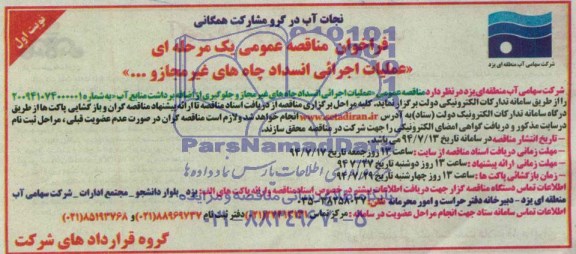 نوبت اول
نجات آب در گرو مشارکت همگانی
فراخوان مناقصه عمومی یک مرحله ای
«عملیات اجرائی انسداد چاه های غیرمجاز و ...»
شرکت سهامی آب منطقه ای یزد
شرکت سهامی آب منطقه‌ای یزد در نظر دارد مناقصه عمومی «عملیات اجرائی انسداد چاه های غیرمجاز و جلوگیری از اضافه برداشت منابع آب» به شماره ۲۰۰۹۴۱۰۷۴۰۰۰۰۰۱
را از طریق سامانه تدارکات الکترونیکی دولت برگزار نماید. کلیه مراحل برگزاری مناقصه از دریافت اسناد مناقصه تا ارائه پیشنهاد مناقصه گران و بازگشایی پاکت ها از طریق
درگاه سامانه تدارکات الکترونیکی دولت (ستاد) به آدرس www.setadiran.ir انجام خواهد شد و لازم است مناقصه گران در صورت عدم عضویت قبلی، مراحل ثبت نام
در سایت مذکور و دریافت گواهی امضای الکترونیکی را جهت شرکت در مناقصه محقق سازند.
- تاریخ انتشار مناقصه در سامانه ۹۴/۷/۱۳ می باشد.
- مهلت زمانی دریافت اسناد مناقصه از سایت: ساعت ۱۳ روز جمعه تاریخ ۹۴/۷/۱۷
- مهلت زمانی ارائه پیشنهاد: ساعت ۱۳ روز دوشنبه تاریخ ۹۴/۷/۲۷
- زمان بازگشائی پاکت ها: ساعت ۱۳ روز چهارشنبه تاریخ ۹۴/۷/۲۹
اطلاعات تماس دستگاه مناقصه گزار جهت دریافت اطلاعات بیشتر در خصوص اسناد مناقصه و ارائه پاکت های الف: یزد - بلوار دانشجو - مجتمع ادارات - شرکت سهامی آب
منطقه ای یزد - دبیرخانه دفتر حراست و امور محرمانه تلفن:
اطلاعات تماس سامانه ستاد جهت انجام مراحل عضویت در سامانه: مرکز تماس دفتر ثبت نام ۸۸۹۶۹۷۳۷ (۰۲۱) و ۸۵۱۹۳۷۶۸ (۰۲۱)
گروه قرارداد های شرکت
ParsNamadData
پایگاه اطلاعات پارس نماد داده ها
۰۲۱-۸۸۳۴۹۶۷۰-۵